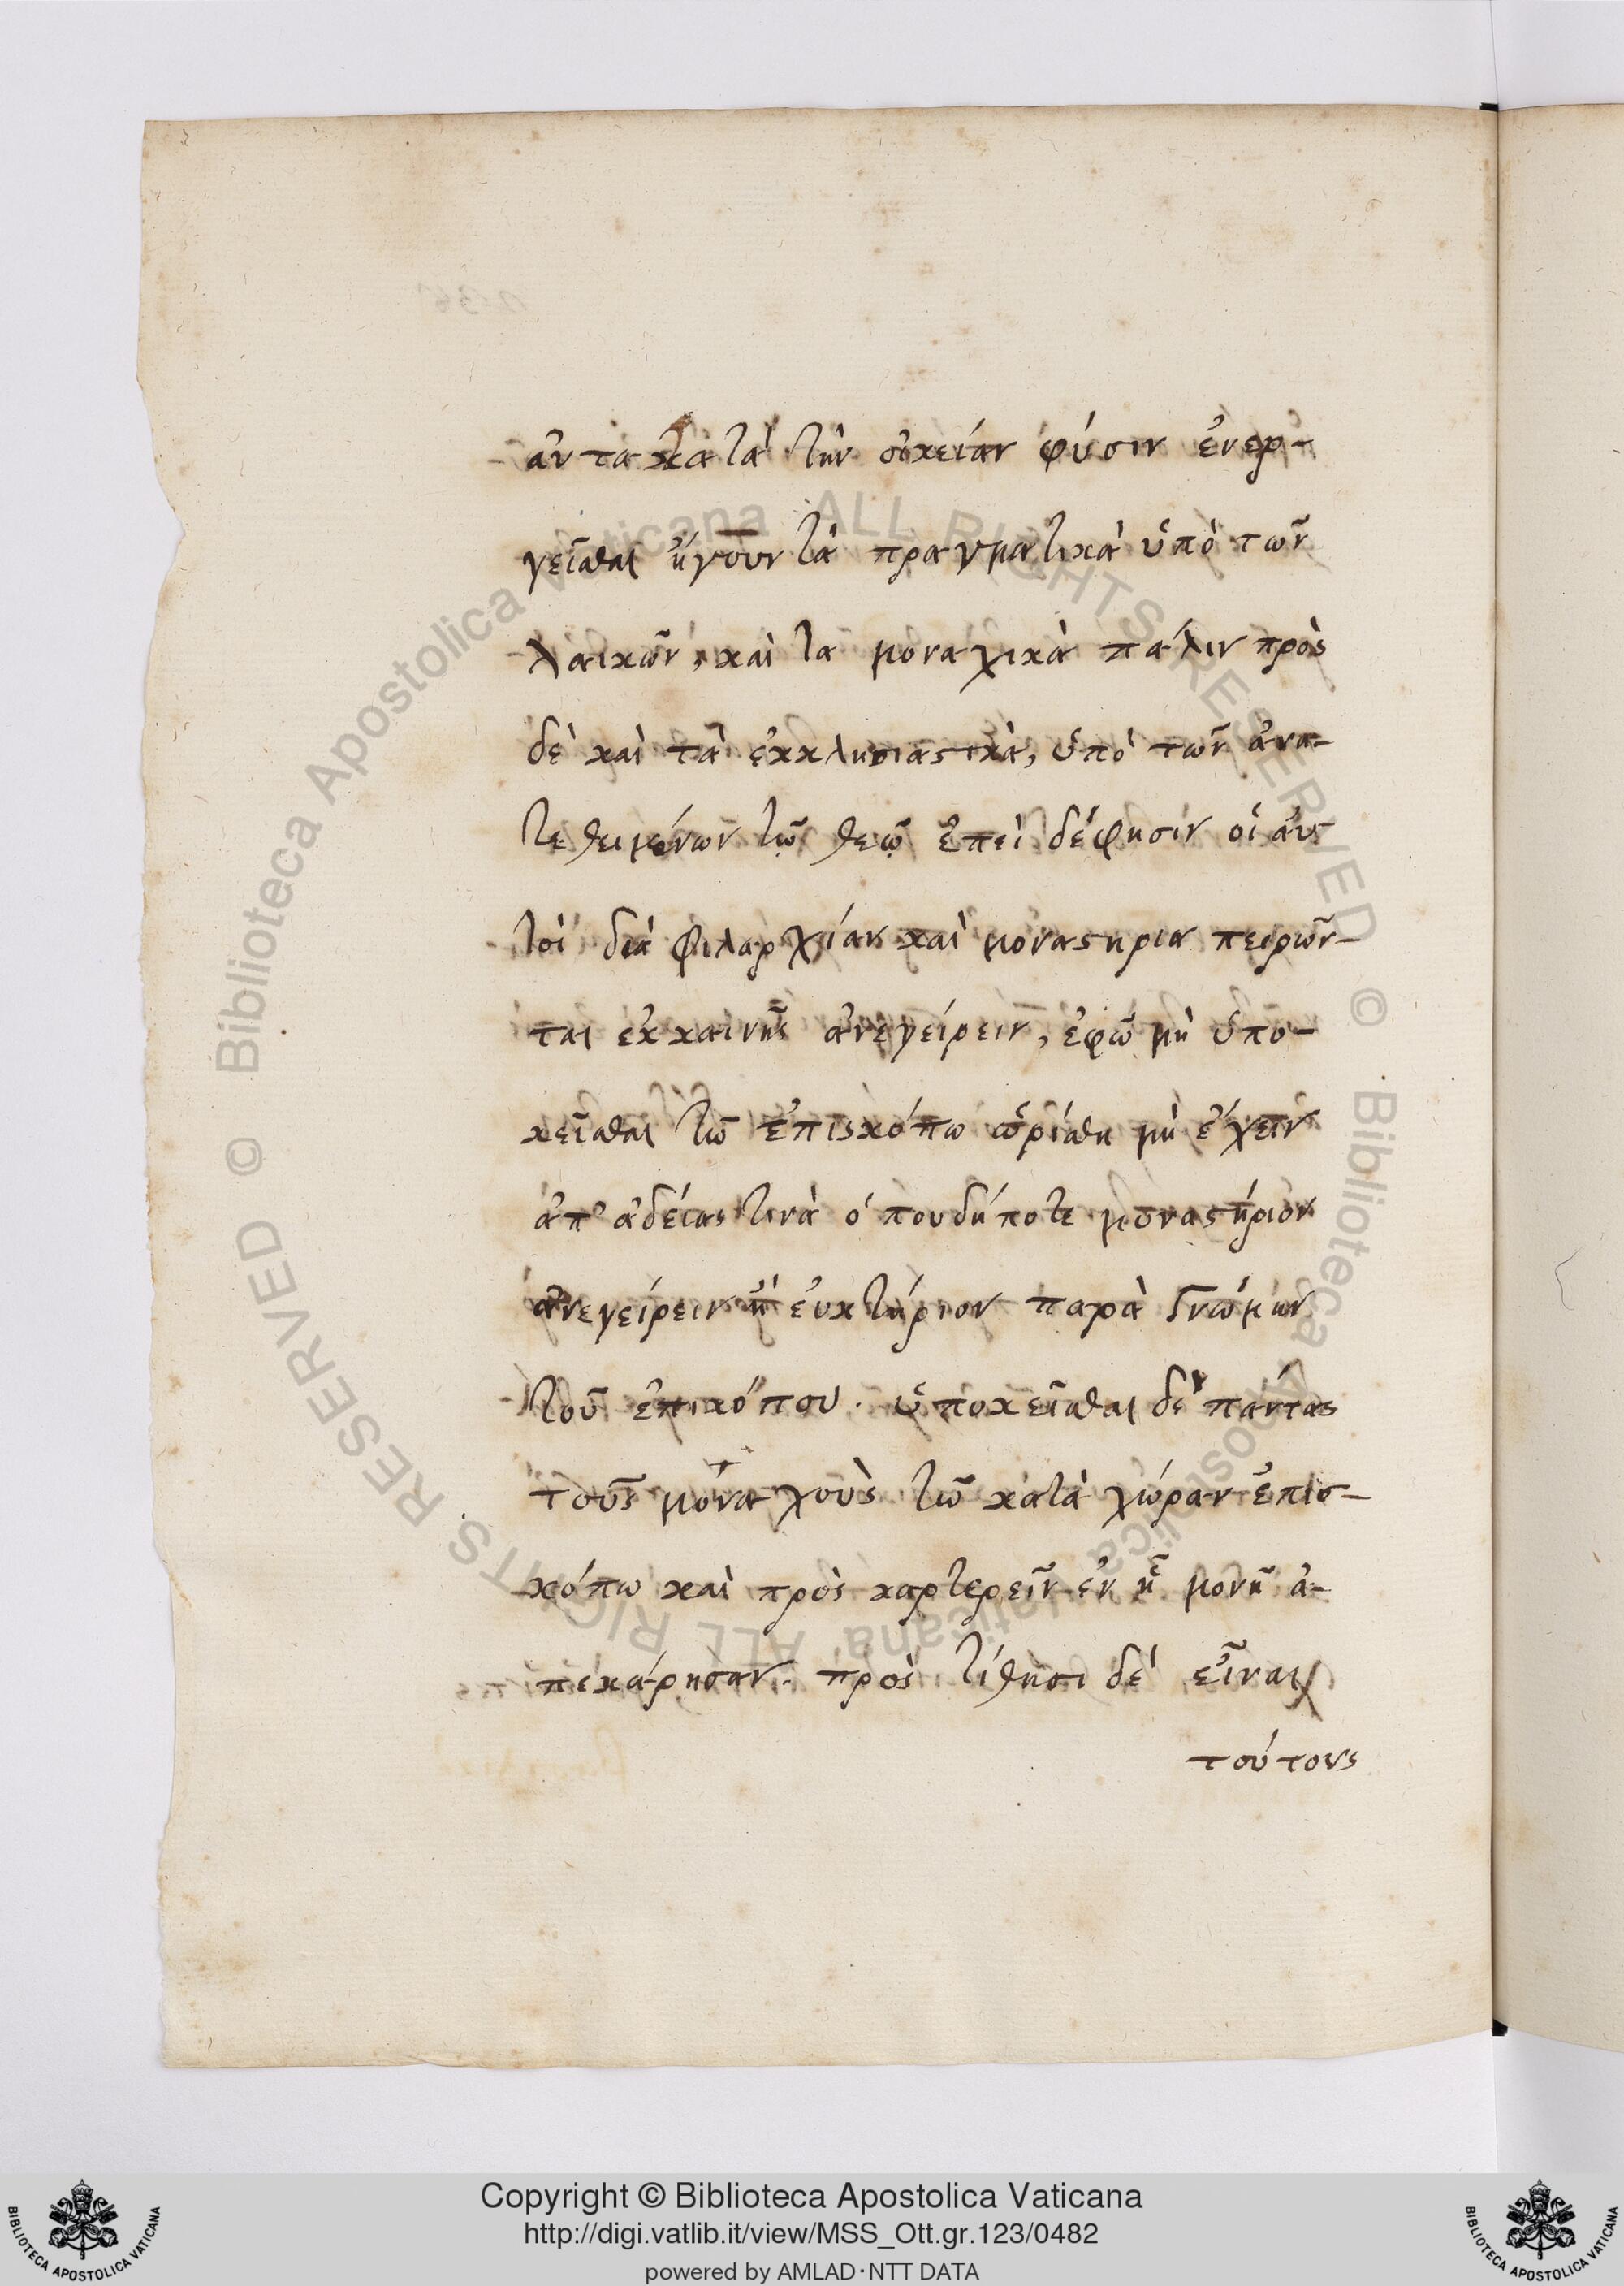 αντα κατὰ τὴν οἰκείαν φύσιν ἐνερ-
γεῖσθαι ἤγουν τὰ πραγματικὰ ὑπὸ τῶν
λαικῶν, καὶ τα μοναχικὰ πάλιν πρὸς
δὲ καὶ τὰ ἐκκλησιαστικὰ, ὑπὸ τῶν ἀνα-
τεθειμένων τῷ θεῷ ἐπεὶ δέ φησιν οἱ αὐ-
τοὶ διὰ φιλαρχίαν καὶ μοναστηρια πειρῶν-
ται ἐκ καινῆς ἀνεγείρειν, ἐφῶ μὴ ὑπο-
κεῖσθαι τῶ ἐπισκόπω ὡρίσθη μὴ ἔχειν
ἀπ' ἀδείας τινὰ ὁπουδήποτε μοναστήριον
ἀνεγείρειν ἢ εὐκτήριον παρὰ γνώμην
τοῦ ἐπικόπου. ὑποκεῖσθαι δὲ πάντας
τοὺς μόναχοὺς τῶ κατὰ χώραν ἐπισ-
κόπω καὶ πρὸς καρτερεῖν ἐν ἧ μονῆ ἀ-
πεκάρησαν. πρὸς τίθησι δὲ εἶναι
τούτους
Copyright © Biblioteca Apostolica Vaticana
http://digi.vatlib.it/view/MSS_Ott.gr.123/0482
powered by AMLAD·NTT DATA
BIBLIOTECA APOSTOLICA VATICANA
BIBLIOTECA APOSTOLICA VATICANA
© Biblioteca Apostolica Vaticana ALL RIGHTS RESERVED © Biblioteca Apostolica Vaticana ALL RIGHTS RESERVED